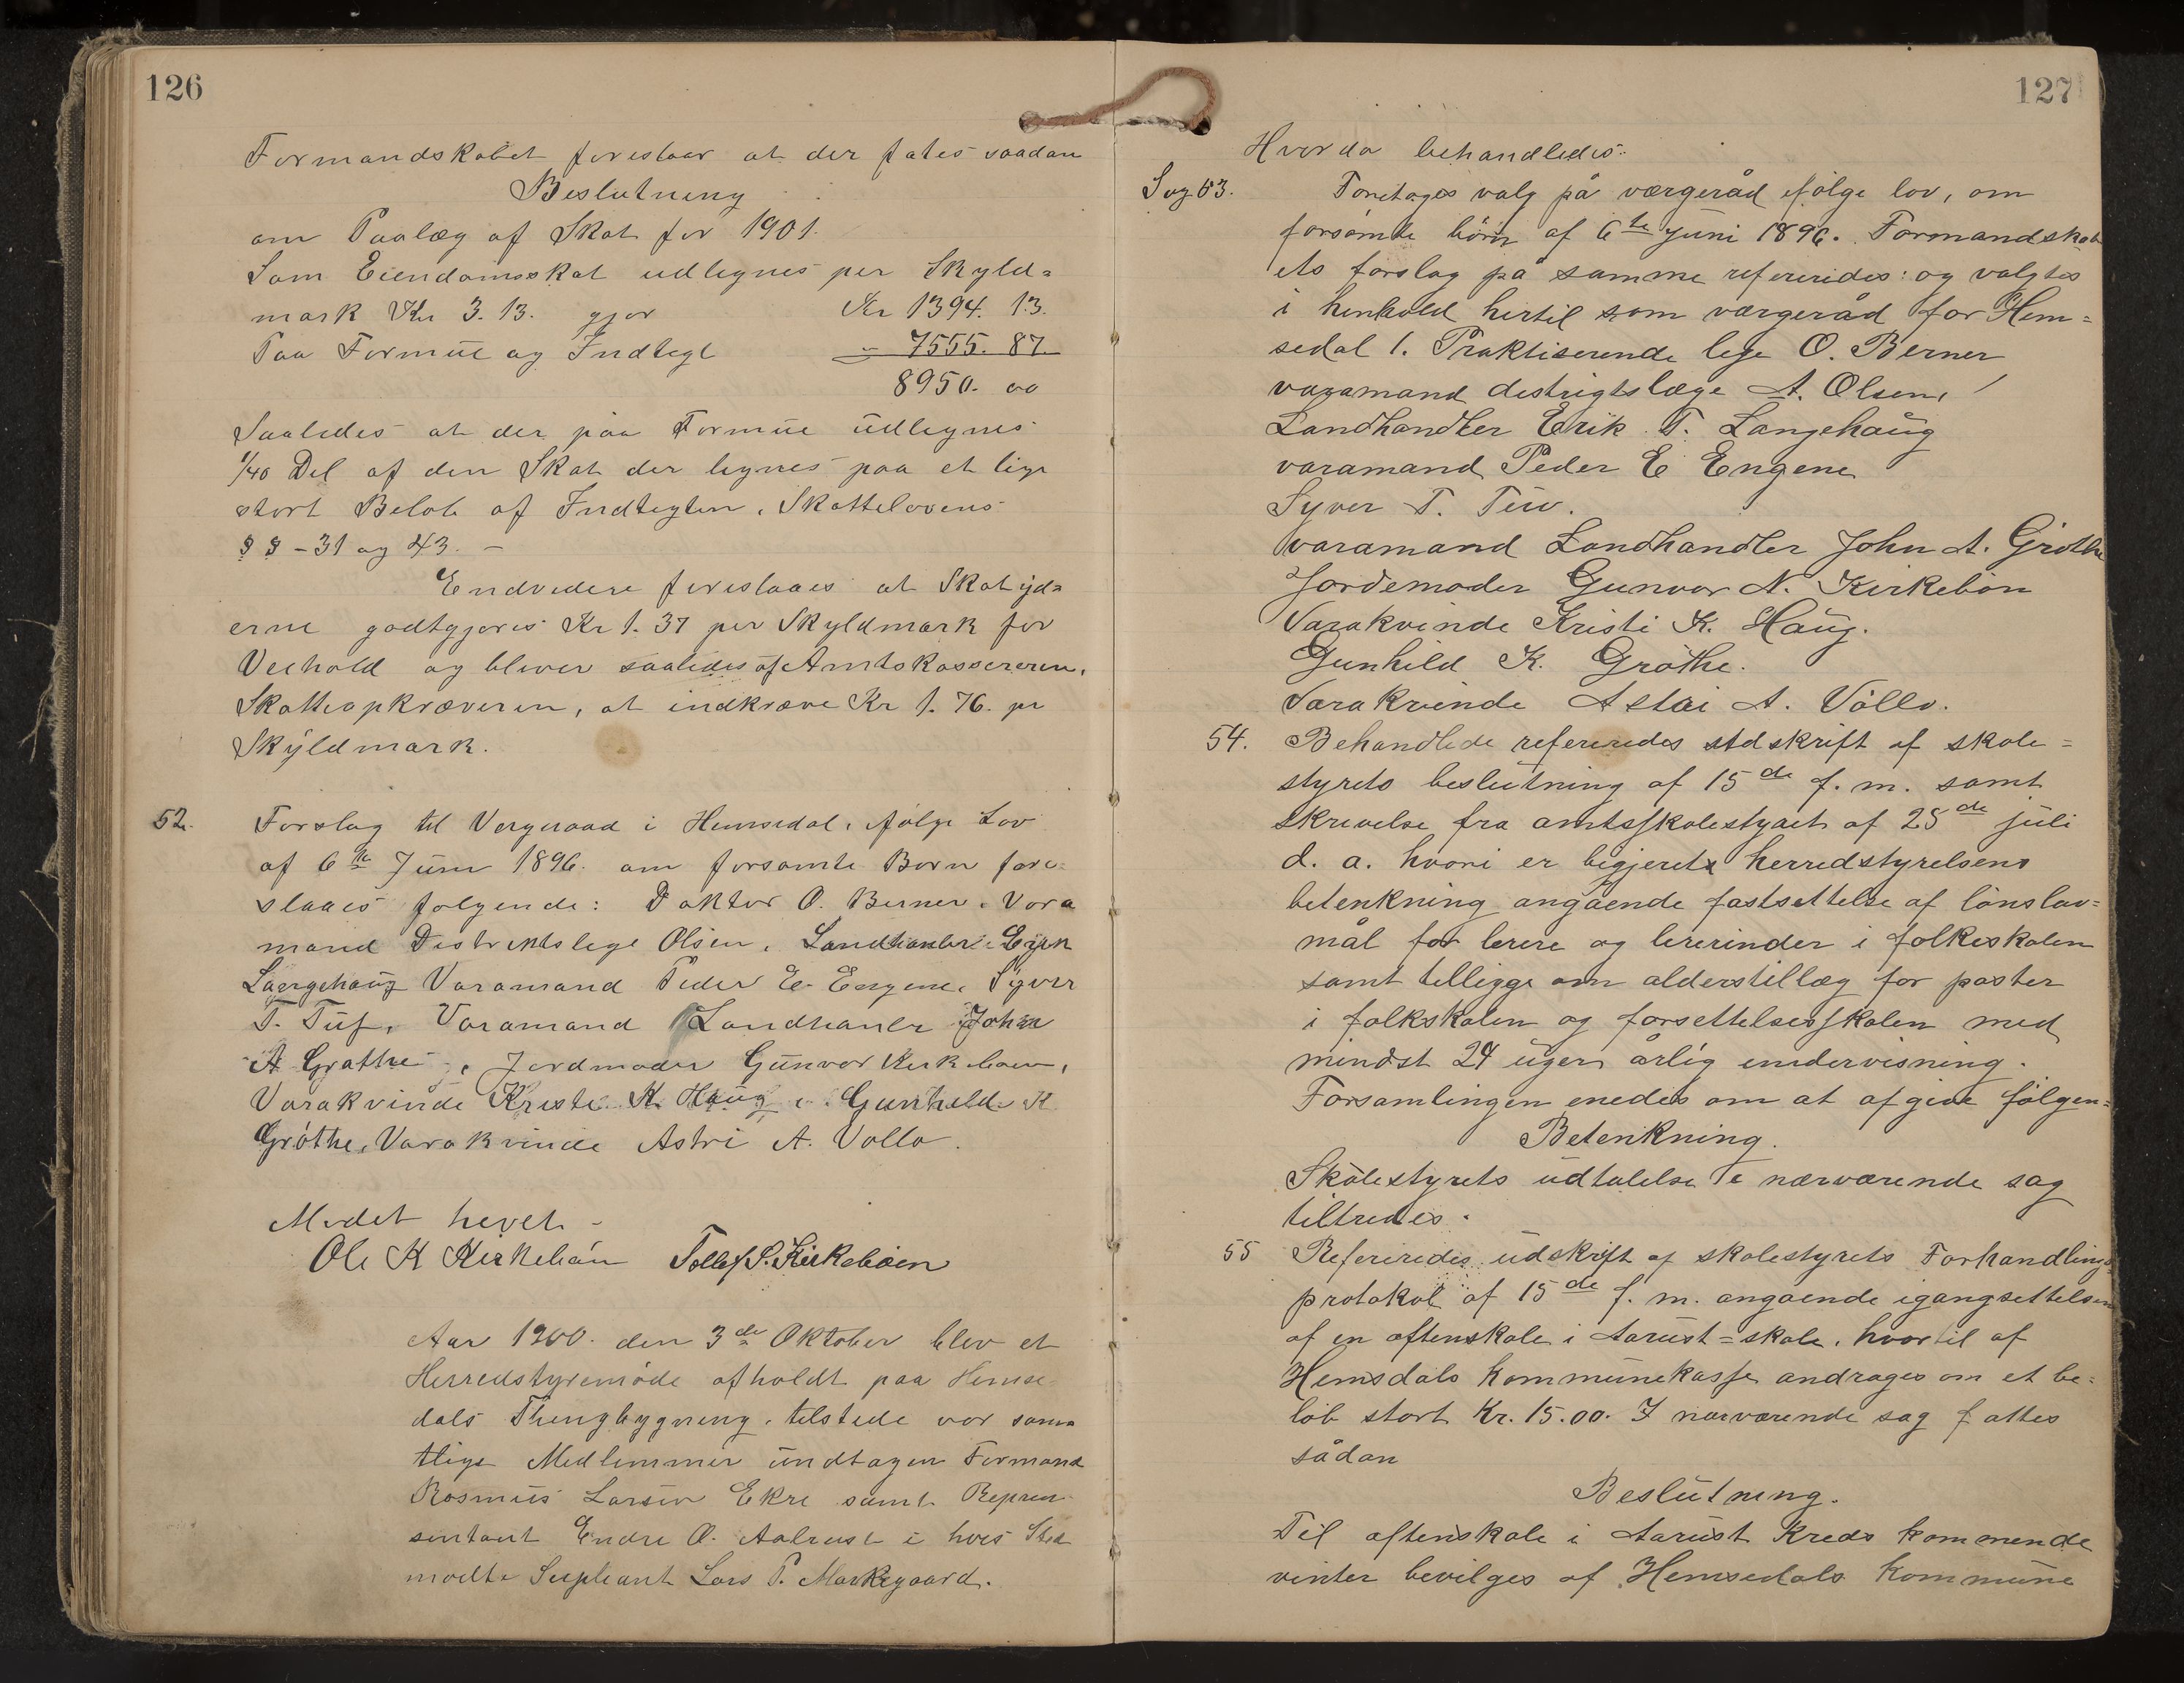 126
Formandskabet foreslaar at der fates saadan
Beslutning
om Paalæg af Skat for 1901.
Som Eiendomsskat udlignes per Skyld=
mark Kr 3.13. gjør Kr 1394. 13.
Paa Formue og Indtegt - 7555. 87.
8950. 00
Saaledes at der paa Formue udlignes
1/40 Del af den Skat der lignes paa et lige
stort Beløb af Indtegten, Skattelovens
§ § - 31 og 43. -
Endvidere foreslaaes at Skatyd=
erne godtgjøres Kr 1.37 per Skyldmark for
Veihold og bliver saaledes af Amtskassereren,
Skatteopkræveren, at indkræve Kr 1.76. pr
Skyldmark.
52. Forslag til Vergeraad i Hemsedal, ifølge Lov
af 6te Juni 1896. om forsømte Børn fore=
slaaes følgende: Doktor O. Berner. Vara
mand Distriktslege Olsen, Landhanler
Langehaug Varamand Peder E. Engene, Syver
T. Tuf, Varamand Landhanler John
A Grøthe, Jordmoder Gunvor Kirkebøen,
Varakvinde Kristi K. Haug, Gunhild K
Grøthe, Varakvinde Astri A. Vøllo.
Mødet hevet -
Ole K Kirkebøen Tollef S. Kirkebøen
Aar 1900. den 3de Oktober blev et
Herredstyremøde afholdt paa Hemse
dals Thingbygning, tilstede var sam
tlige Medlemmer undtagen Formand
Rasmus Larsen Ekre samt Repræ
sentant Endre O. Aalrust i hvis Sted
mødte Supleant Lars P. Markegaard.
127
Hvor da behandledes:
Sag 53. Foretages valg på værgeråd ifølge lov, om
forsømte børn af 6te juni 1896. Formandskab
ets forslag på samme refereredes: og valgtes
i henhold hertil som værgeråd for Hem=
sedal 1. Praktiserende lege O. Berner
varamand distrigtslæge A. Olsen,
Landhandler Erik T. Langehaug
varamand Peder E Engene
Syver T. Tuv.
varamand Landhandler John A. Grøthe
Jordemoder Gunvor N. Kirkebøn
Varakvinde Kristi K. Haug.
Gunhild K. Grøthe.
Varakvinde A. Vøllo.
54. Behandlede refereredes udskrift af skole=
styrets beslutning af 15de f. m. samt
skrivelse fra amtsskolestyret af 25de juli
d. a. hvori er begjerets herredstyrelsens
betenkning angående fastsettelse af lønslav=
mål for lerere og lererinder i folkeskolen
samt tillegge om alderstillæg for poster
i folkskolen og forsettelsesskolen med
mindst 24 ugers årlig undervisning.
Forsamlingen enedes om at afgive følgen=
Betenkning.
Skolestyrets udtalelse i nærværende sag
tiltredes.
55 Refereredes udskrift af skolestyrets Forhandlings=
protokol af 15de f. m. angående igangsettelsen
af en aftenskole i skole, hvortil af
Hemsdals kommunekasse andrages om et be=
løb stort Kr. 15.00. I nærværende sag fattes
sådan
Beslutning.
Til aftenskole i Kreds kommende
vinter bevilges af Hemsedals Kommune